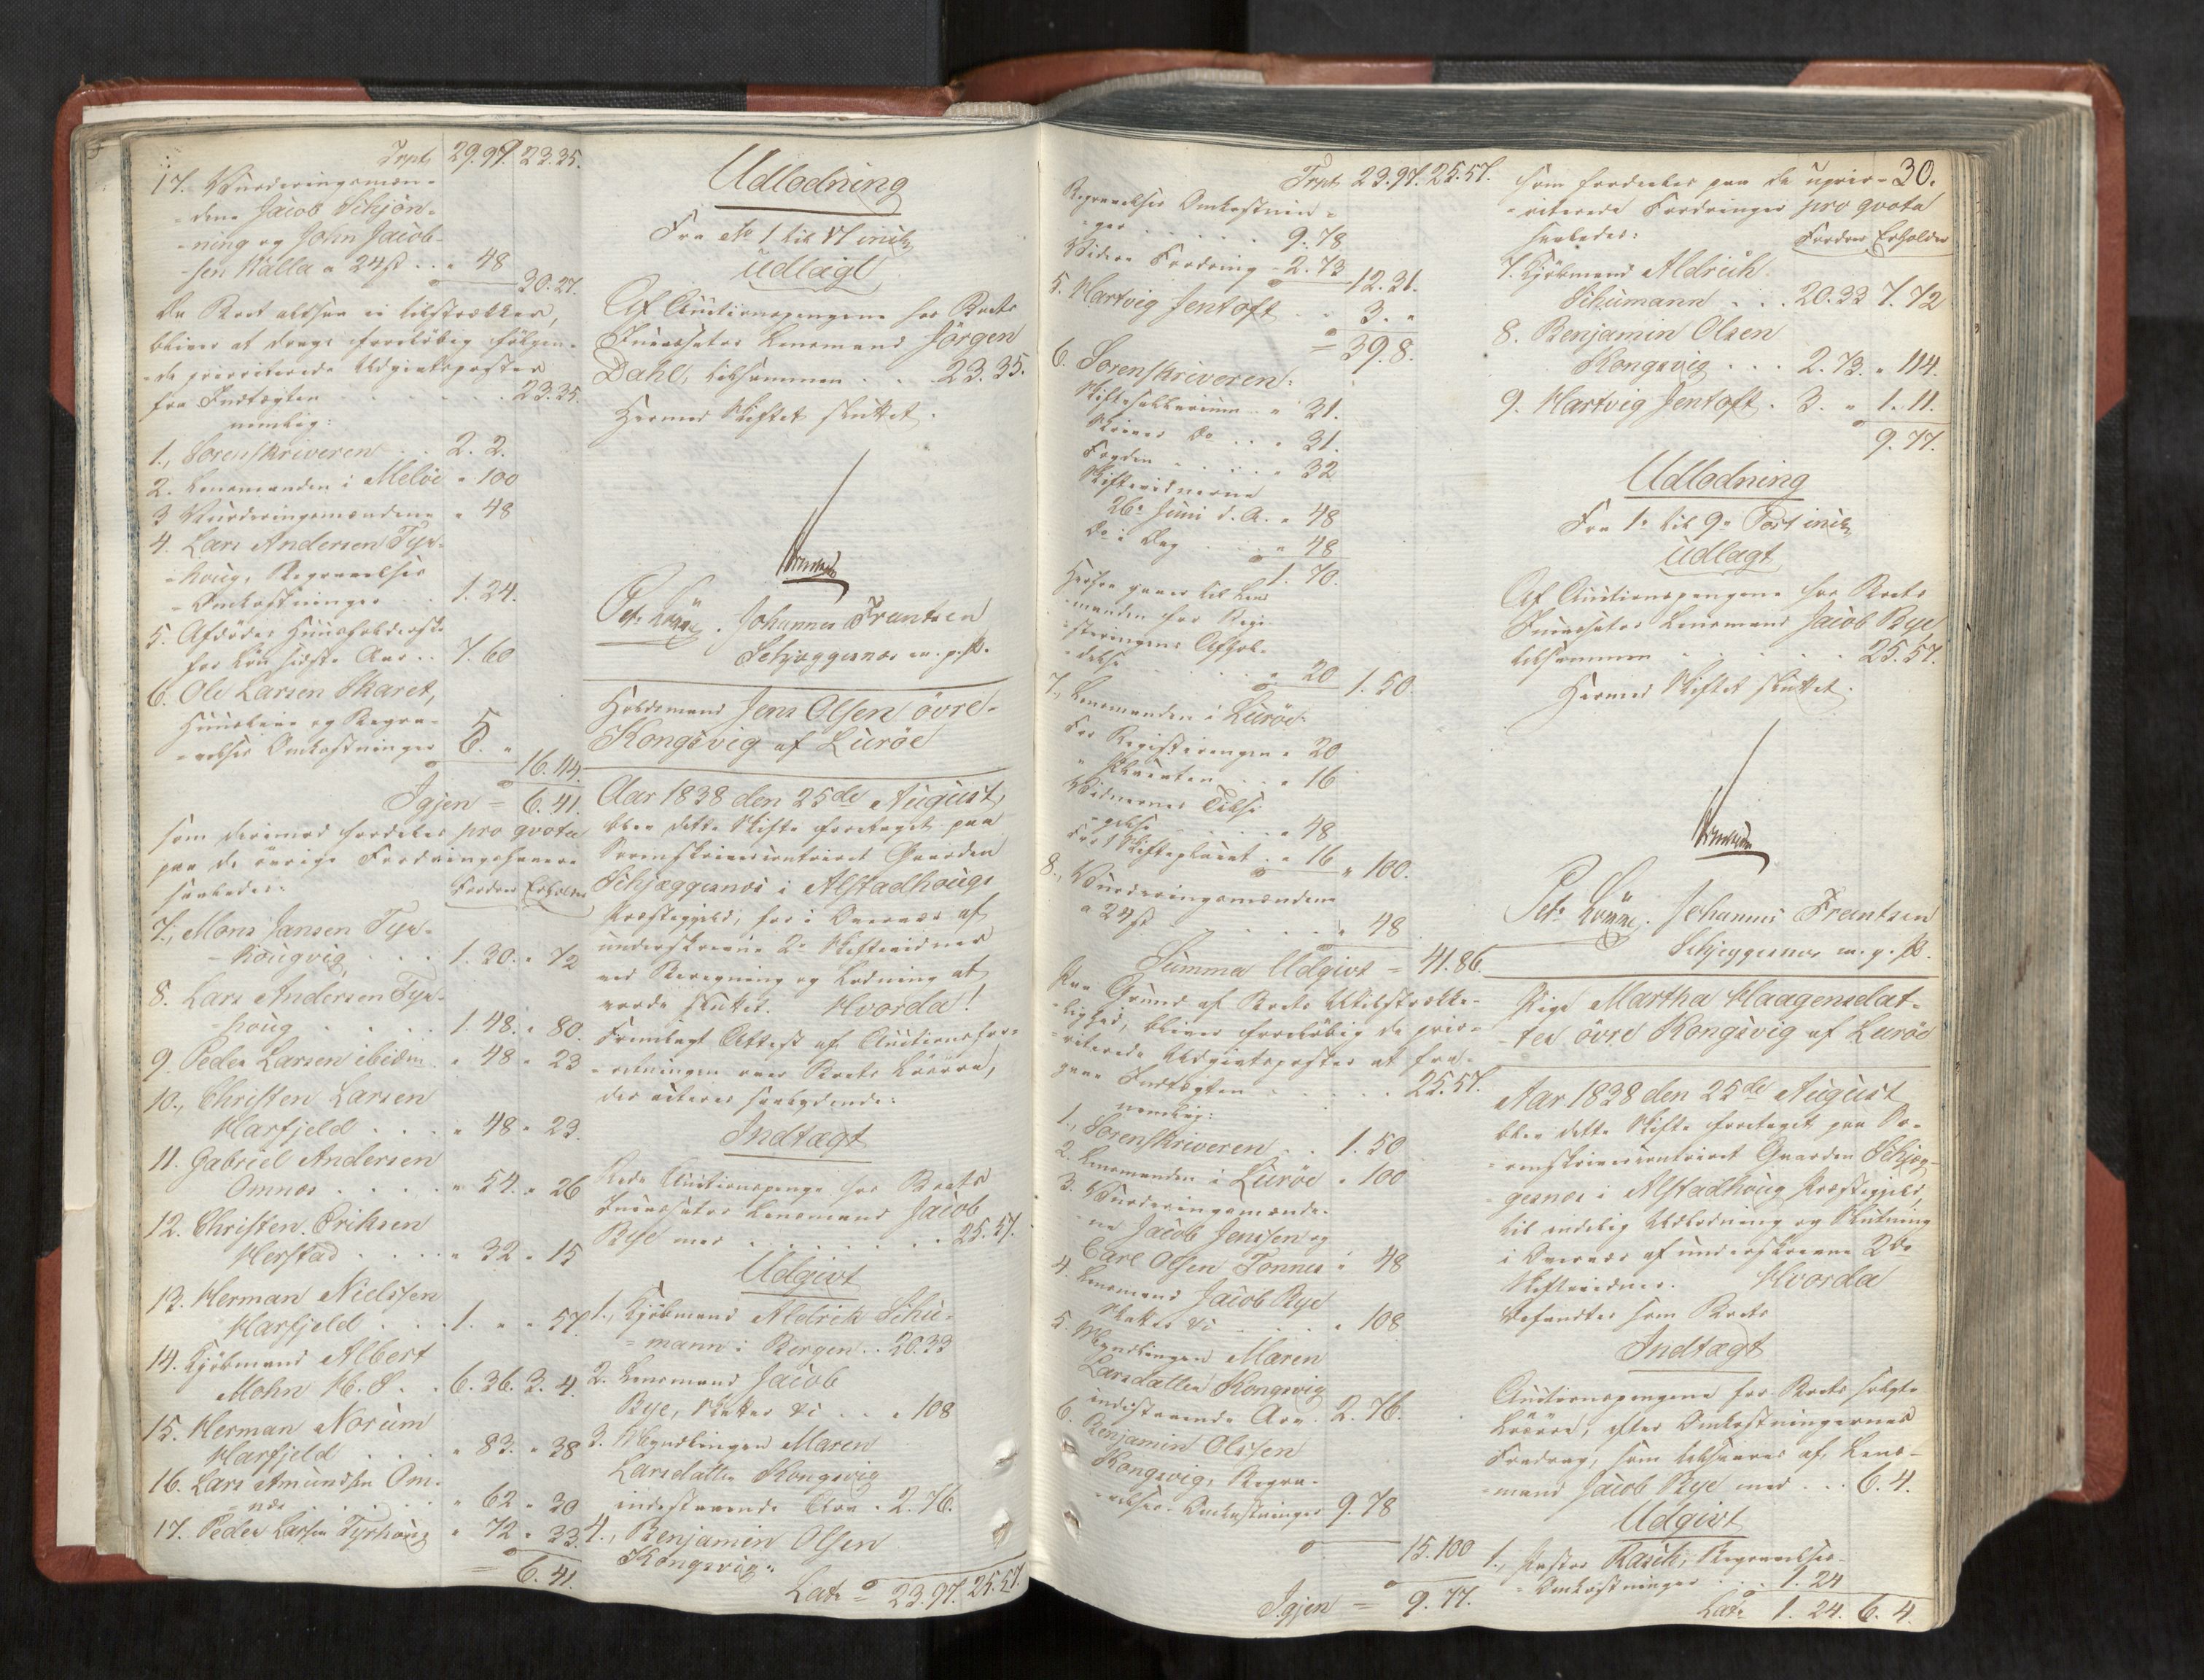 Trpt 29.97. 23.35.
17. Vurderingsmæn-
dene Jacob Schjøn-
ning og John Jacob-
sen Walla a 24ß . . „ 48
30.27.
Da Boet altsaa ei tilstrækker,
bliver at drage foreløbig følgen-
de prioriterede Udgivtsposter
fra Indtægten . . . 23.35.
nemlig:
1., Sorenskriveren . . 2. 2.
2. Lensmanden i Meløe „ 100
3 Vurderingsmændene „ 48
4. Lars Andersen Tyv-
houg, Begravelses
Omkostninger . 1.24.
5. Afdødes Huusholderske
for Løn sidste Aar . . 7.60
6. Ole Larsen Skaret,
Huusleie og Begra-
velses Omkostninger 5. „
16.114.
Igjen = 6.41.
som derimod fordeles pro qvota
paa de øvrige Fordringshavere
saaledes: Fordrer Erholder
7., Mons Jansen Tyv-
hougvig . . . 1.30. „ 72
8. Lars Andersen Tyv-
houg . . . . 1.48. „ 80.
9. Peder Larsen ibidm „ 48 „ 23
10., Christen Larsen
Harfjeld . . . „ 48 „ 23.
11. Gabriel Andersen
Omnes . . . . „ 54. „ 26
12. Christen Eriksen
Herstad . . . . „ 32 „ 15
13. Herman Nielssen
Harfjeld . . . 1. „ „ 57
14. Kjøbmand Albert
Mohn H. S. . . 6.36. 3. 4.
15. Herman Norum
Harfjeld . . . „ 83. „ 38
16. Lars Amundsen Om-
nes . . . . „ 62 „ 30
17. Peder Larsen Tyvhoug „ 72 „ 33.
= 6.41.
Udlodning
Fra No 1 til 17 incl.
udlagt
Af Auctionspengene hos Boets
Incassator Lensmand Jørgen
Dahl, tilsammen . . 23.35.
Hermed Skiftet sluttet.
Johannes Frantsen
Schjeggesnes m. p. P.
Holdsmand Jens Olsen øvre-
Kongsvig af Lurøe
Aar 1838 den 25de August,
blev dette Skifte foretaget paa
Sorenskrivercontoiret Gaarden
Schjæggesnes i Alstadhougs
Præstegjeld, for i Overvær af
underskrevne 2de Skiftevidner
ved Beregning og Lodning at
vorde sluttet. Hvorda!
Fremlagt Attest af Auctionsfor-
retningen over Boets Løsøre,
der citeres saalydende:
Indtægt
Rede Auctionspenge hos Boets
Incassator Lensmand Jacob
Bye med . . . . . 25.57.
Udgivt
1., Kjøbmand Aldrich Schu-
mann i Bergen . . 20.33
2. Lensmand Jacob
Bye, Skatter &c . . „ 108
3. Myndlingen Maren
Larsdatter Kongsvig
indestaaende Arv . 2.76.
4., Benjamin Olsen
Kongsvig:
Lats = 23.97. 25.57.
30.
Trpt 23.97. 25.57.
Begravelses Omkostnin-
ger . . . . . 9.78
Videre Fordring - 2.73
12.31.
5. Hartvig Jentoft . . 3. „
= 39.8.
6. Sorenskriveren:
Skiftesallarium . „ 31.
Skriver Do . . „ 31.
Fogden . . . . „ 32
Skiftevidnerne
26de Juni d. A. „ 48
Do i Dag . . „ 48
1. 70.
Herfra gaaer til Lens
manden for Regi-
streringens Afhol-
delse . . . . „ 20
1.50.
7., Lensmanden i Lurøe
For Registeringen „ 20
„ Placaten . . „ 16
Vidnernes Tilsi-
gelse . . . . „ 48
For Skifteplacat . „ 16
„ 100.
8., Vurderingsmændene
a 24ß . . . . . „ 48
Summa Udgivt = 41.86.
Paa Grund af Boets Utilstrække-
lighed, bliver foreløbig de prio-
riterede Udgivtsposter at fra-
gaae Indtægten . . . . 25.57.
nemlig:
1., Sorenskriveren . . 1.50
2. Lensmanden i Lurøe „ 100
3. Vurderingsmænde-
ne Jacob Jenssen og
Carl Olsen Tonnes „ 48
4. Lensmand Jacob Bye
Skatter &c . . . „ 108
5. Myndlingen Maren
Larsdatter Kongsvig
indestaaende Arv . 2.76.
6. Benjamin Olssen
Kongsvig, Begra-
velses Omkostninger 9.78
15.100
Igjen = 9.77.
som fordeles paa de uprio-
riterede Fordringer pro qvota
saaledes: Fordrer Erholder
7. Kjøbmand Aldrich
Schumann . . . 20.33 7.72
8. Benjamin Olsen
Kongsvig . . . 2.73. „ 114.
9. Hartvig Jentoft . 3. „ 1. 11.
9.77.
Udlodning
Fra 1ste til 9de Post incl.
udlagt
Af Auctionspengene hos Boets
Incassator Lensmand Jacob Bye
tilsammen . . . . . 25.57.
Hermed Skiftet sluttet.
Johannes Frantsen
Schjeggesnes m. p. P.
Pige Martha Haagensdat-
ter øvre Kongsvig af Lurøe
Aar 1838 den 25de August
blev dette Skifte foretaget paa So-
renskrivercontoiret Gaarden Schjeg-
gesnes i Alstadhoug Præstegjeld,
til endelig Udlodning og Slutning
i Overvær af underskrevne 2de
Skiftevidner. Hvorda
befandtes som Boets
Indtægt
Auctionspengene for Boets solgte
Løsøre, efter Omkostningernes
Fradrag, som tilsvares af Lens-
mand Jacob Bye med . . . 6. 4.
Udgivt
1., Pastor Rasch, Begravelses-
Omkostninger . . . 1.24
Lats 1. 24. 6. 4.